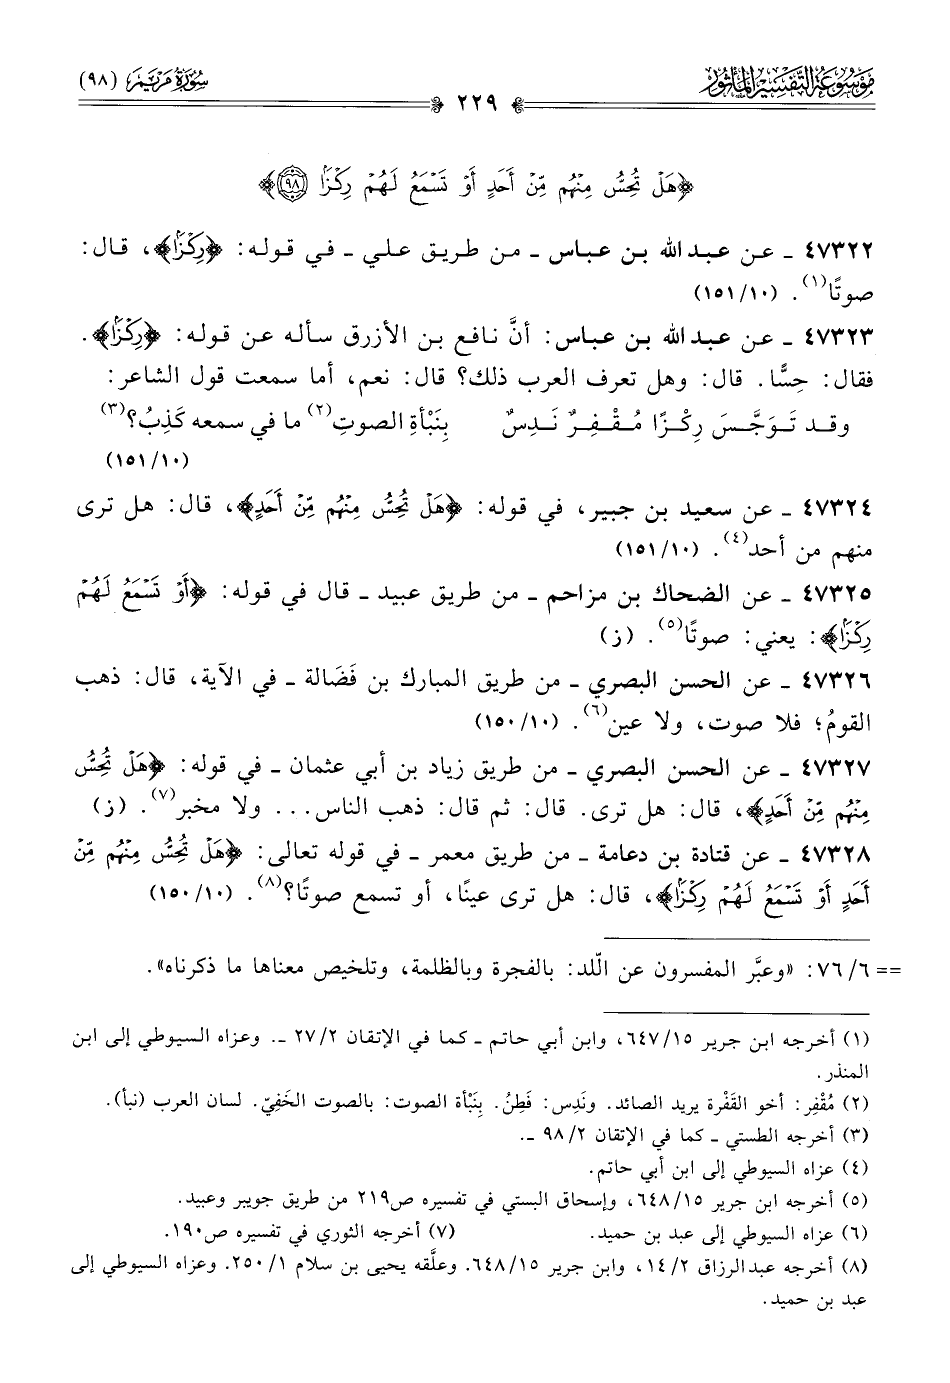 مَوْسُوعَة التَّفْسِيْر المَأْثُور
٢٢٩
سُورَةُ مَرْيَم (٩٨)
﴿هَلْ تُحِسُّ مِنْهُم مِّنْ أَحَدٍ أَوْ تَسْمَعُ لَهُمْ رِكْزًا ٩٨﴾
٤٧٣٢٢ ـ عن عبد الله بن عباس ـ من طريق علي ـ في قوله: ﴿رِكْزًا﴾، قال:
صوتًا(١). (١٠/ ١٥١)
٤٧٣٢٣ ـ عن عبد الله بن عباس: أنَّ نافع بن الأزرق سأله عن قوله: ﴿رِكْزًا﴾.
فقال: حِسًّا. قال: وهل تعرف العرب ذلك؟ قال: نعم، أما سمعت قول الشاعر:
وقد تَوَجَّسَ رِكْزًا مُقْفِرٌ نَدِسٌ بِنَبْأةِ الصوتِ(٢) ما في سمعه كَذِبُ؟(٣)
(١٠/ ١٥١)
٤٧٣٢٤ ـ عن سعيد بن جبير، في قوله: ﴿هَلْ تُحِسُّ مِنْهُم مِّنْ أَحَدٍ﴾، قال: هل ترى
منهم من أحد(٤). (١٠/ ١٥١)
٤٧٣٢٥ ـ عن الضحاك بن مزاحم ـ من طريق عبيد ـ قال في قوله: ﴿أَوْ تَسْمَعُ لَهُمْ
رِكْزًا﴾: يعني: صوتًا(٥). (ز)
٤٧٣٢٦ ـ عن الحسن البصري ـ من طريق المبارك بن فَضَالة ـ في الآية، قال: ذهب
القومُ؛ فلا صوت، ولا عين(٦). (١٠/ ١٥٠)
٤٧٣٢٧ ـ عن الحسن البصري ـ من طريق زياد بن أبي عثمان ـ في قوله: ﴿هَلْ تُحِسُّ
مِنْهُم مِّنْ أَحَدٍ﴾، قال: هل ترى. قال: ثم قال: ذهب الناس... ولا مخبر(٧). (ز)
٤٧٣٢٨ ـ عن قتادة بن دعامة ـ من طريق معمر ـ في قوله تعالى: ﴿هَلْ تُحِسُّ مِنْهُم مِّنْ
أَحَدٍ أَوْ تَسْمَعُ لَهُمْ رِكْزًا﴾، قال: هل ترى عينًا، أو تسمع صوتًا؟(٨). (١٠/ ١٥٠)
== ٦/ ٧٦: «وعبَّر المفسرون عن اللّد: بالفجرة وبالظلمة، وتلخيص معناها ما ذكرناه».
(١) أخرجه ابن جرير ١٥/ ٦٤٧، وابن أبي حاتم ـ كما في الإتقان ٢/ ٢٧ ـ. وعزاه السيوطي إلى ابن
المنذر.
(٢) مُقْفِر: أخو القَفْرة يريد الصائد. ونَدِس: فَطِنٌ. بِنَبْأة الصوت: بالصوت الخَفِيّ. لسان العرب (نبأ).
(٣) أخرجه الطستي ـ كما في الإتقان ٢/ ٩٨ ـ.
(٤) عزاه السيوطي إلى ابن أبي حاتم.
(٥) أخرجه ابن جرير ١٥/ ٦٤٨، وإسحاق البستي في تفسيره ص٢١٩ من طريق جويبر وعبيد.
(٦) عزاه السيوطي إلى عبد بن حميد. (٧) أخرجه الثوري في تفسيره ص١٩٠.
(٨) أخرجه عبد الرزاق ٢/ ١٤، وابن جرير ١٥/ ٦٤٨. وعلَّقه يحيى بن سلام ١/ ٢٥٠. وعزاه السيوطي إلى
عبد بن حميد.